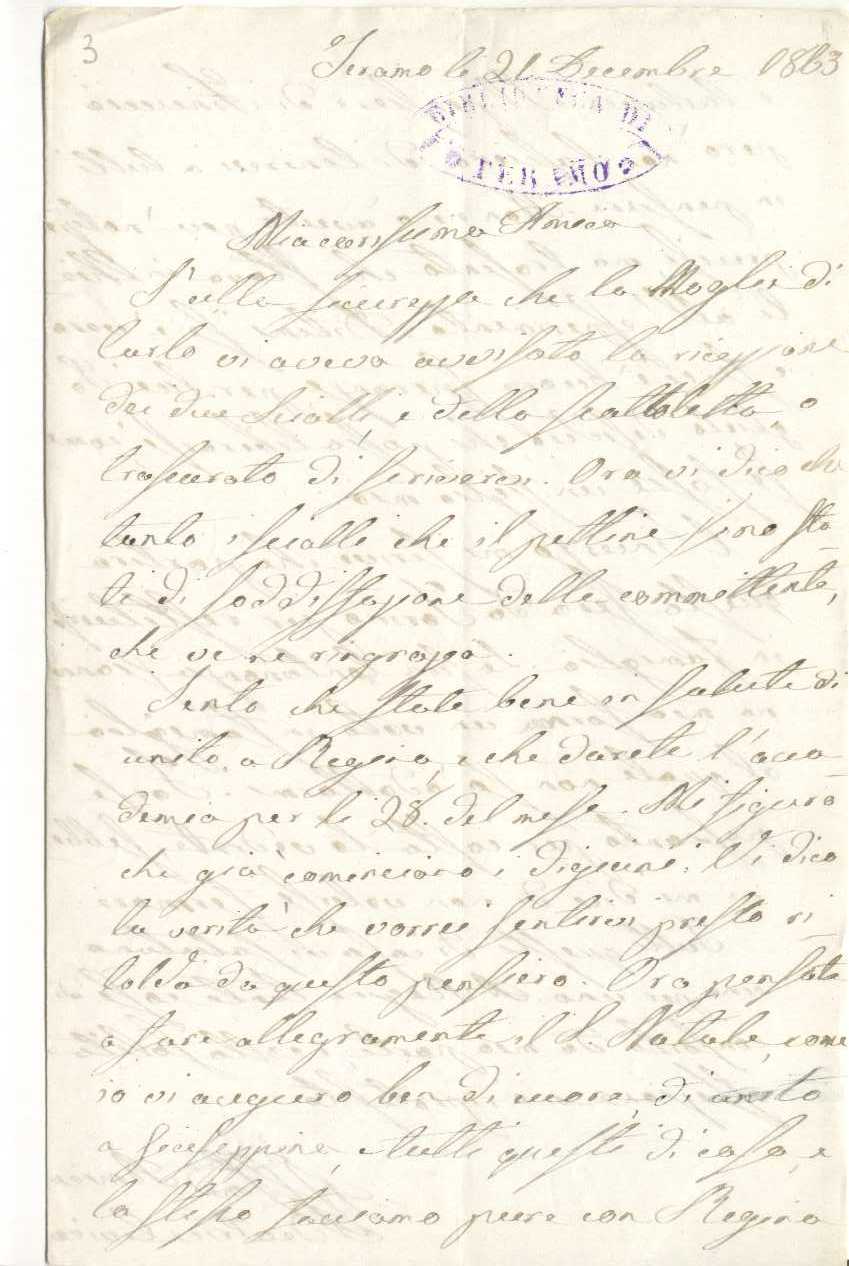 3
Teramo li 21 Decembre 1863
BIBLIOTECA DI
TERAMO
Mia carissima Amica
Sulla sicurezza che la Moglie di
Carlo vi aveva avvisato la ricezzione
dei due Scialli, e della scattoletta, o
trascurato di scrivervi. Ora vi dico che
tanto i scialli che il pettine sono sta-
ti di soddisfazione delle committente,
che ve ne ringrazia.
Sento che state bene in salute di
unito a Regina, e che darete l'acca-
demia per li 28. del mese. Mi figuro
che già cominciaro i digiuni. Vi dico
la verità che vorrei sentirvi presto
da questo pensiero. Ora pensate
a fare allegramente il S. Natale, come
io vi auguro ben di cuore, di unito
a Giuseppina, e tutti questi di casa, e
lo stesso facciamo pure con Regina